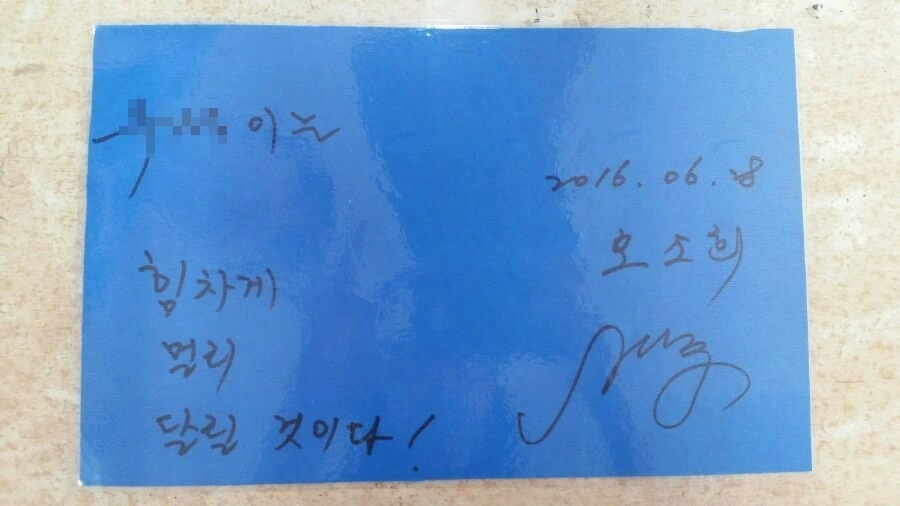 이는
힘차게
멀리
달릴 것이다!
2016. 06. 28
호소희